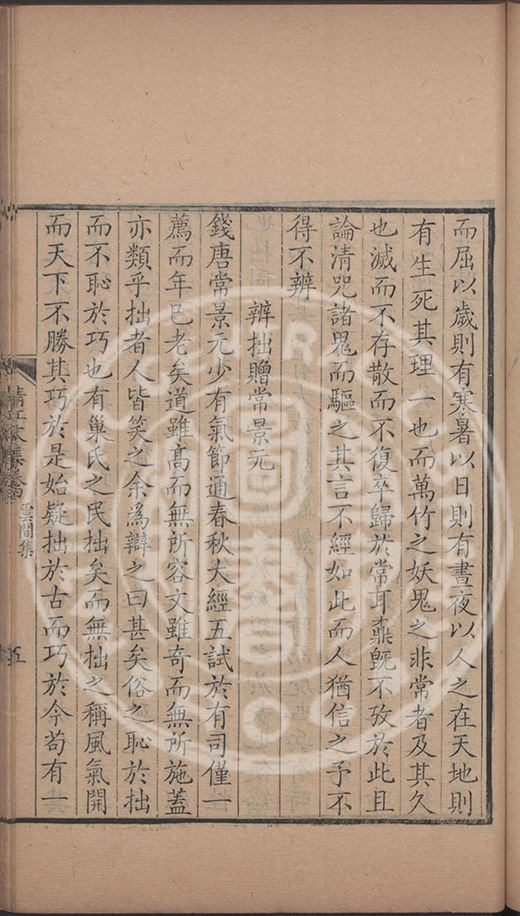 而屈以歲則有寒暑以日則有晝夜以人之在天地則
有生死其理一也而萬竹之妖鬼之非常者及其久
也滅而不存散而不復卒歸於常耳鼒旣不攷於此且
論清咒諸鬼而驅之其言不經如此而人猶信之予不
得不辨
辨拙贈常景元
錢唐常景元少有氣節通春秋大經五試於有司僅一
薦而年已老矣道雖高而無所容文雖奇而無所施蓋
亦類乎拙者人皆笑之余為辯之曰甚矣俗之恥於拙
而不恥於巧也有巢氏之民拙矣而無拙之稱風氣開
而天下不勝其巧於是始疑拙於古而巧於今苟有一
清江文集
雲間集
五